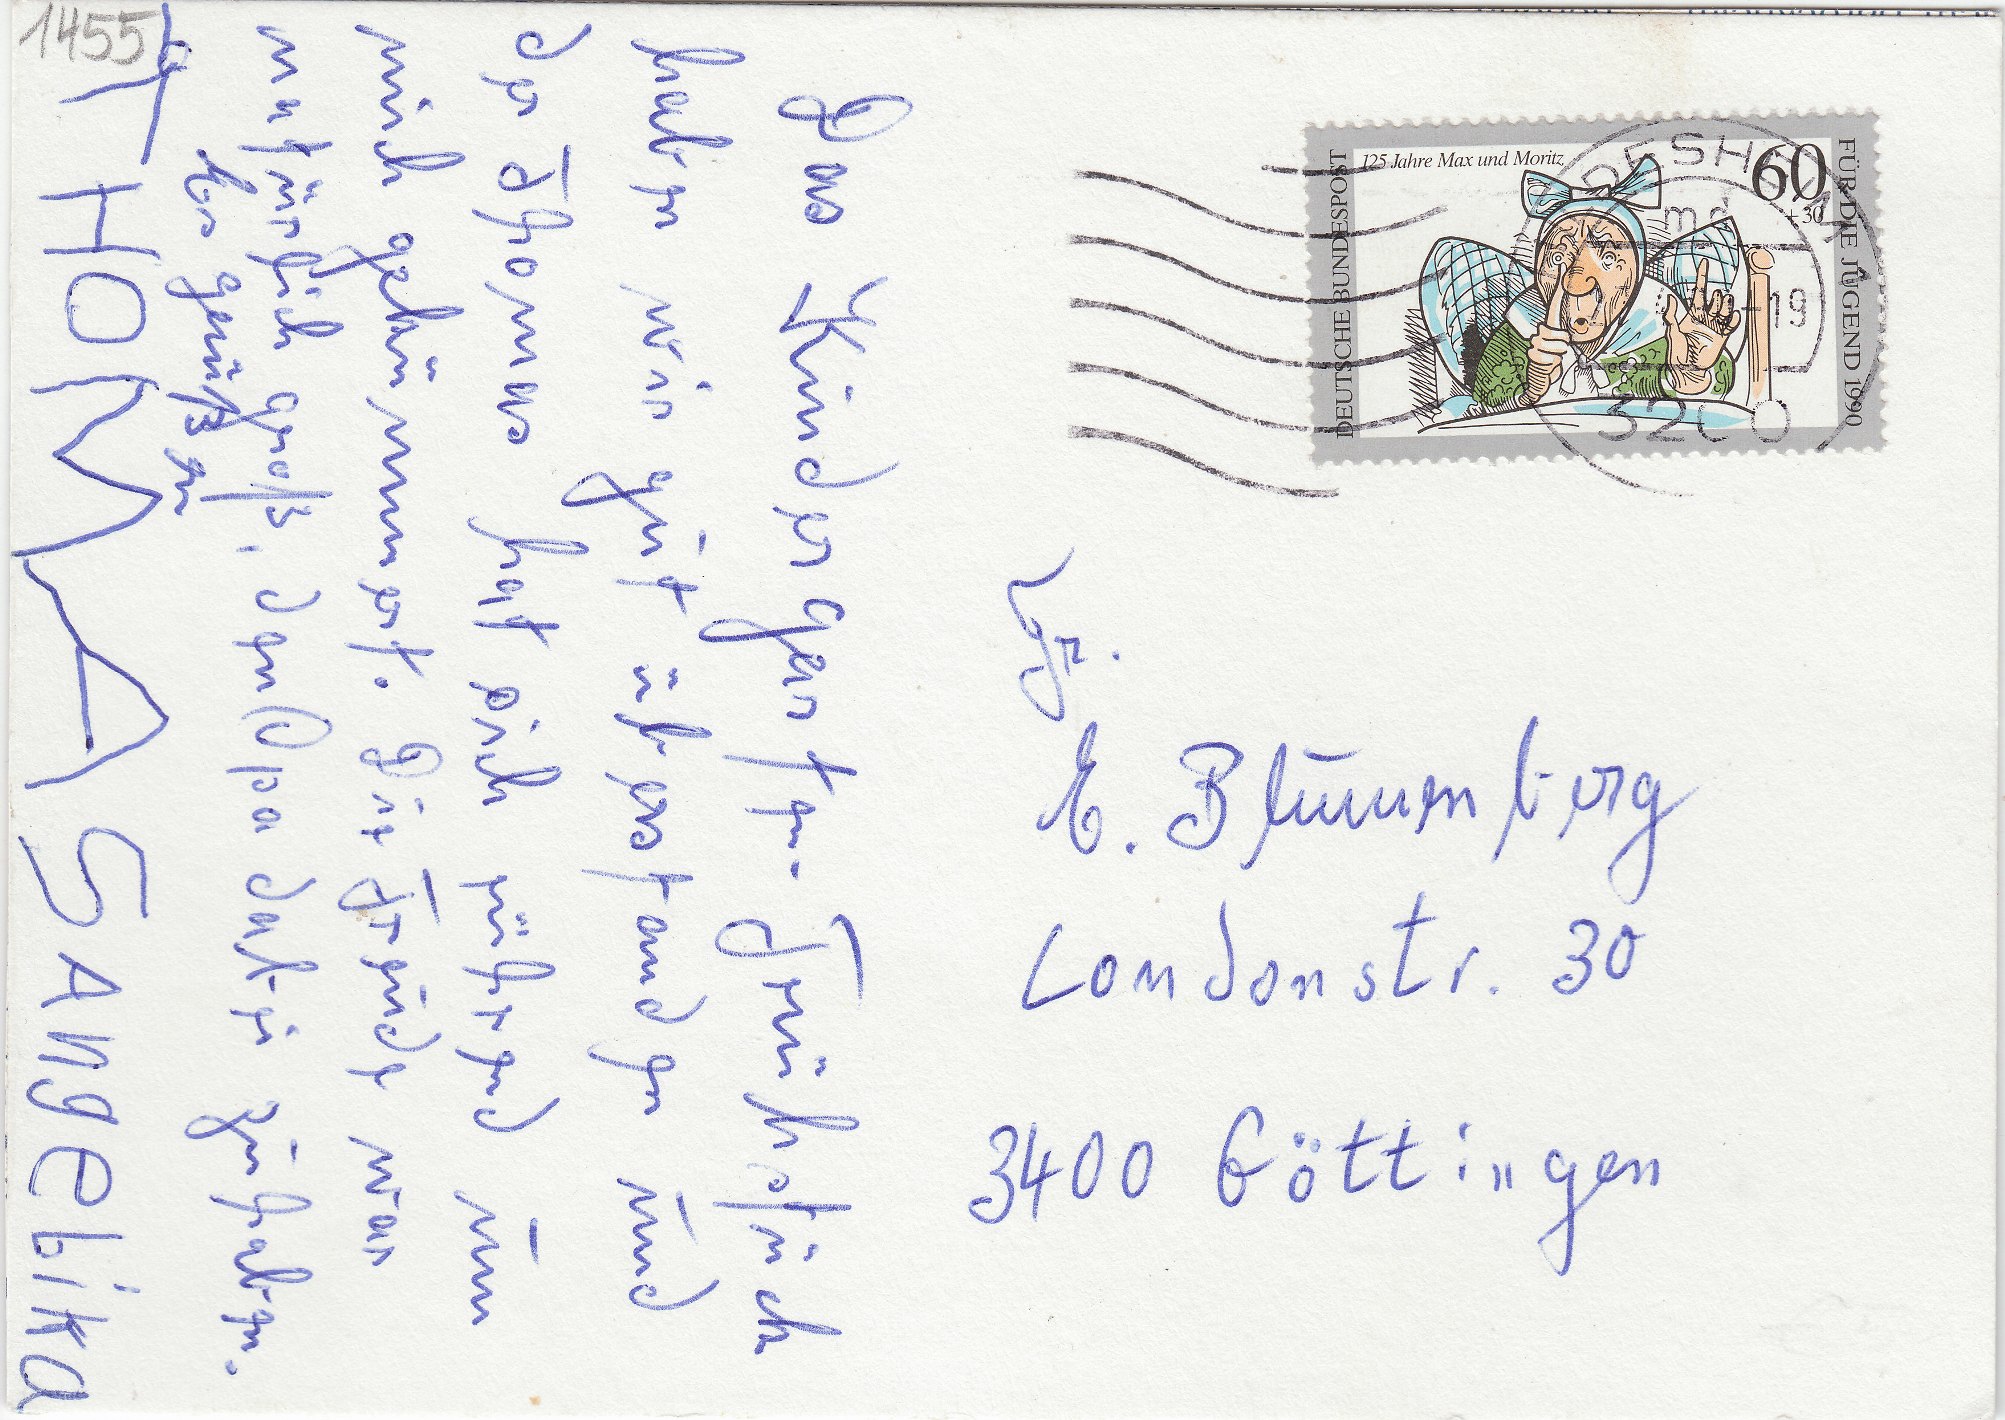 1455
Das Kindergarten-Frühstück
haben wir gut überstanden und
der Thomas hat sich rührend um
mich gekümmert. Die Freude war
natürlich groß, den Opa dabei zu haben.
Herzlichst
THOMAS Angebika
125 Jahre Max und Moritz
DEUTSCHE BUNDESPOST
60
+30
FÜR DIE JUGEND 1990
DESHEIM
md
-19
3200
Fr.
E. Blumenberg
Londonstr. 30
3400 Göttingen